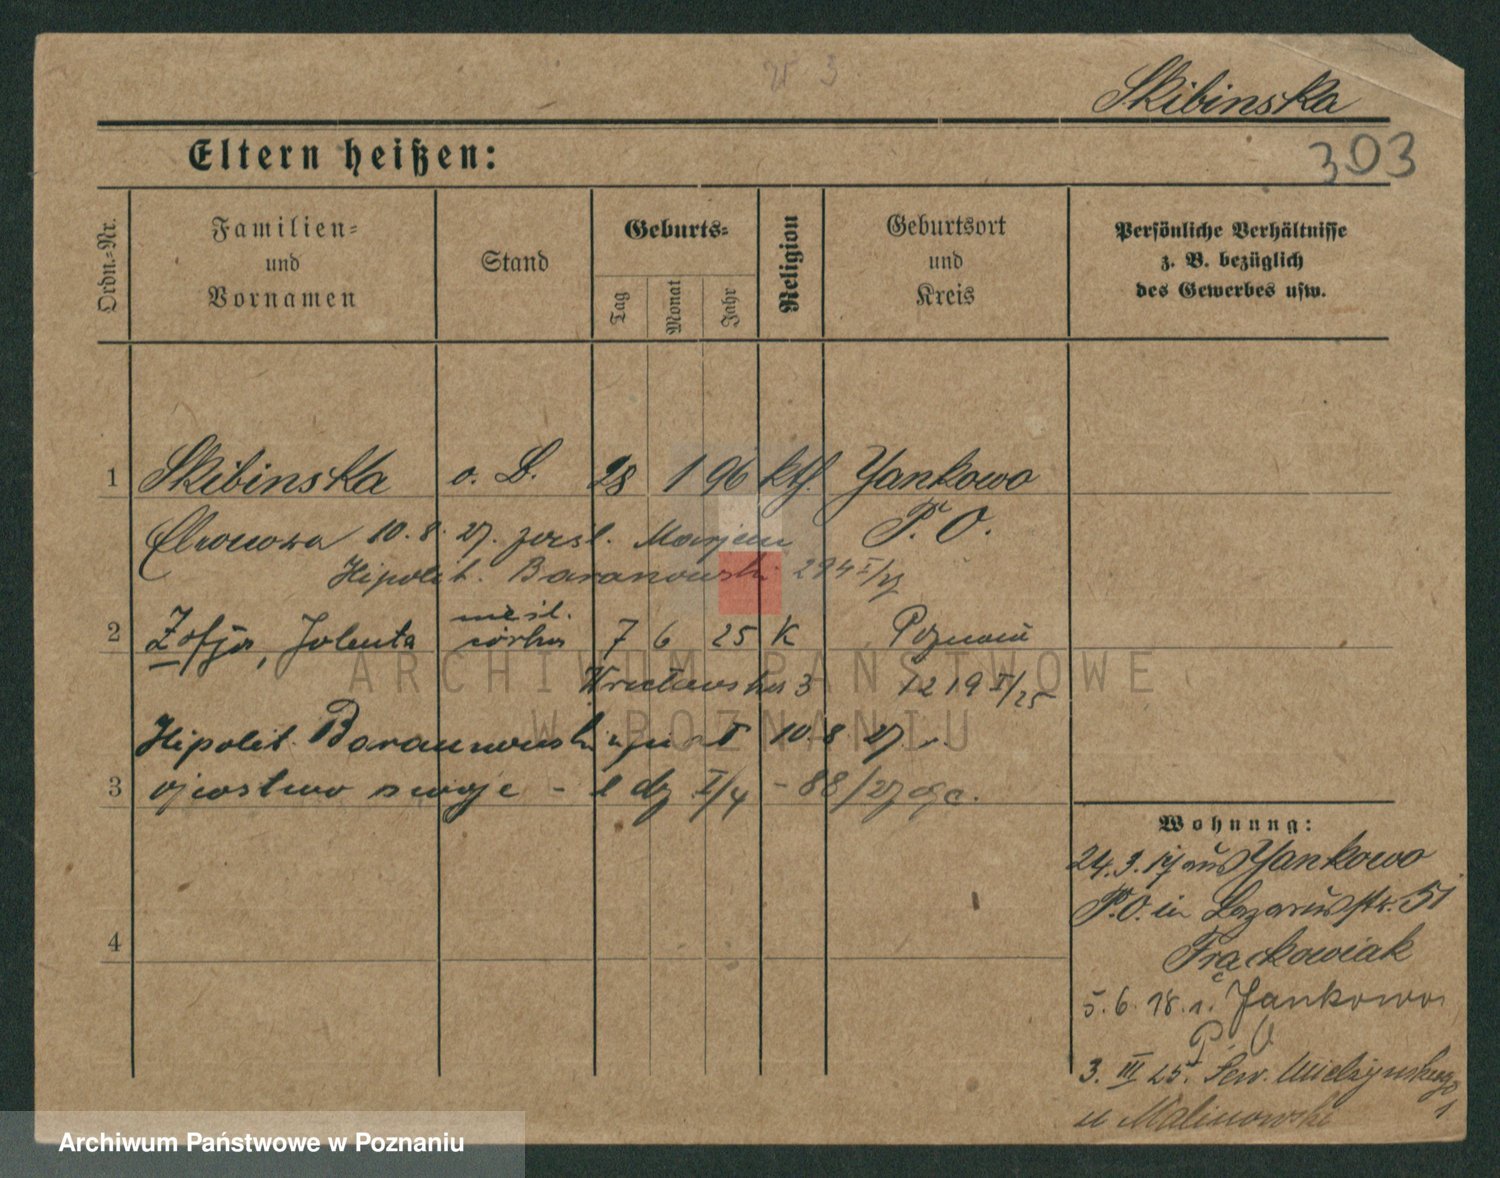 Skibinska
303
Eltern heißen:
Ordn.-Nr.
Familien- und Vornamen
Stand
Geburts-
Tag
Monat
Jahr
Religion
Geburtsort und Kreis
Persönliche Verhältnisse z. B. bezüglich des Gewerbes usw.
1 Skibinska o. B. 28 1 96 kth. Yankowo
10. 8. 27. P. O.
Hipolit. Baranowski
2 Zofja, Jolenta córka 7 6 25 K Poznań
3 1219 I/25
Hipolit Baranowski 10. 8 27 r.
3 ojcostwo swoje - I/4 - 88/27
4
Wohnung:
24. 3. 17 aus Yankowo
P.O. in Lazarusstr. 51
Frąckowiak
5. 6. 18. n. Jankowo
P O
3. III 25. Sew. Mielżyńskiego 1
u Malinowski
ARCHIWUM PAŃSTWOWE
W POZNANIU
Archiwum Państwowe w Poznaniu